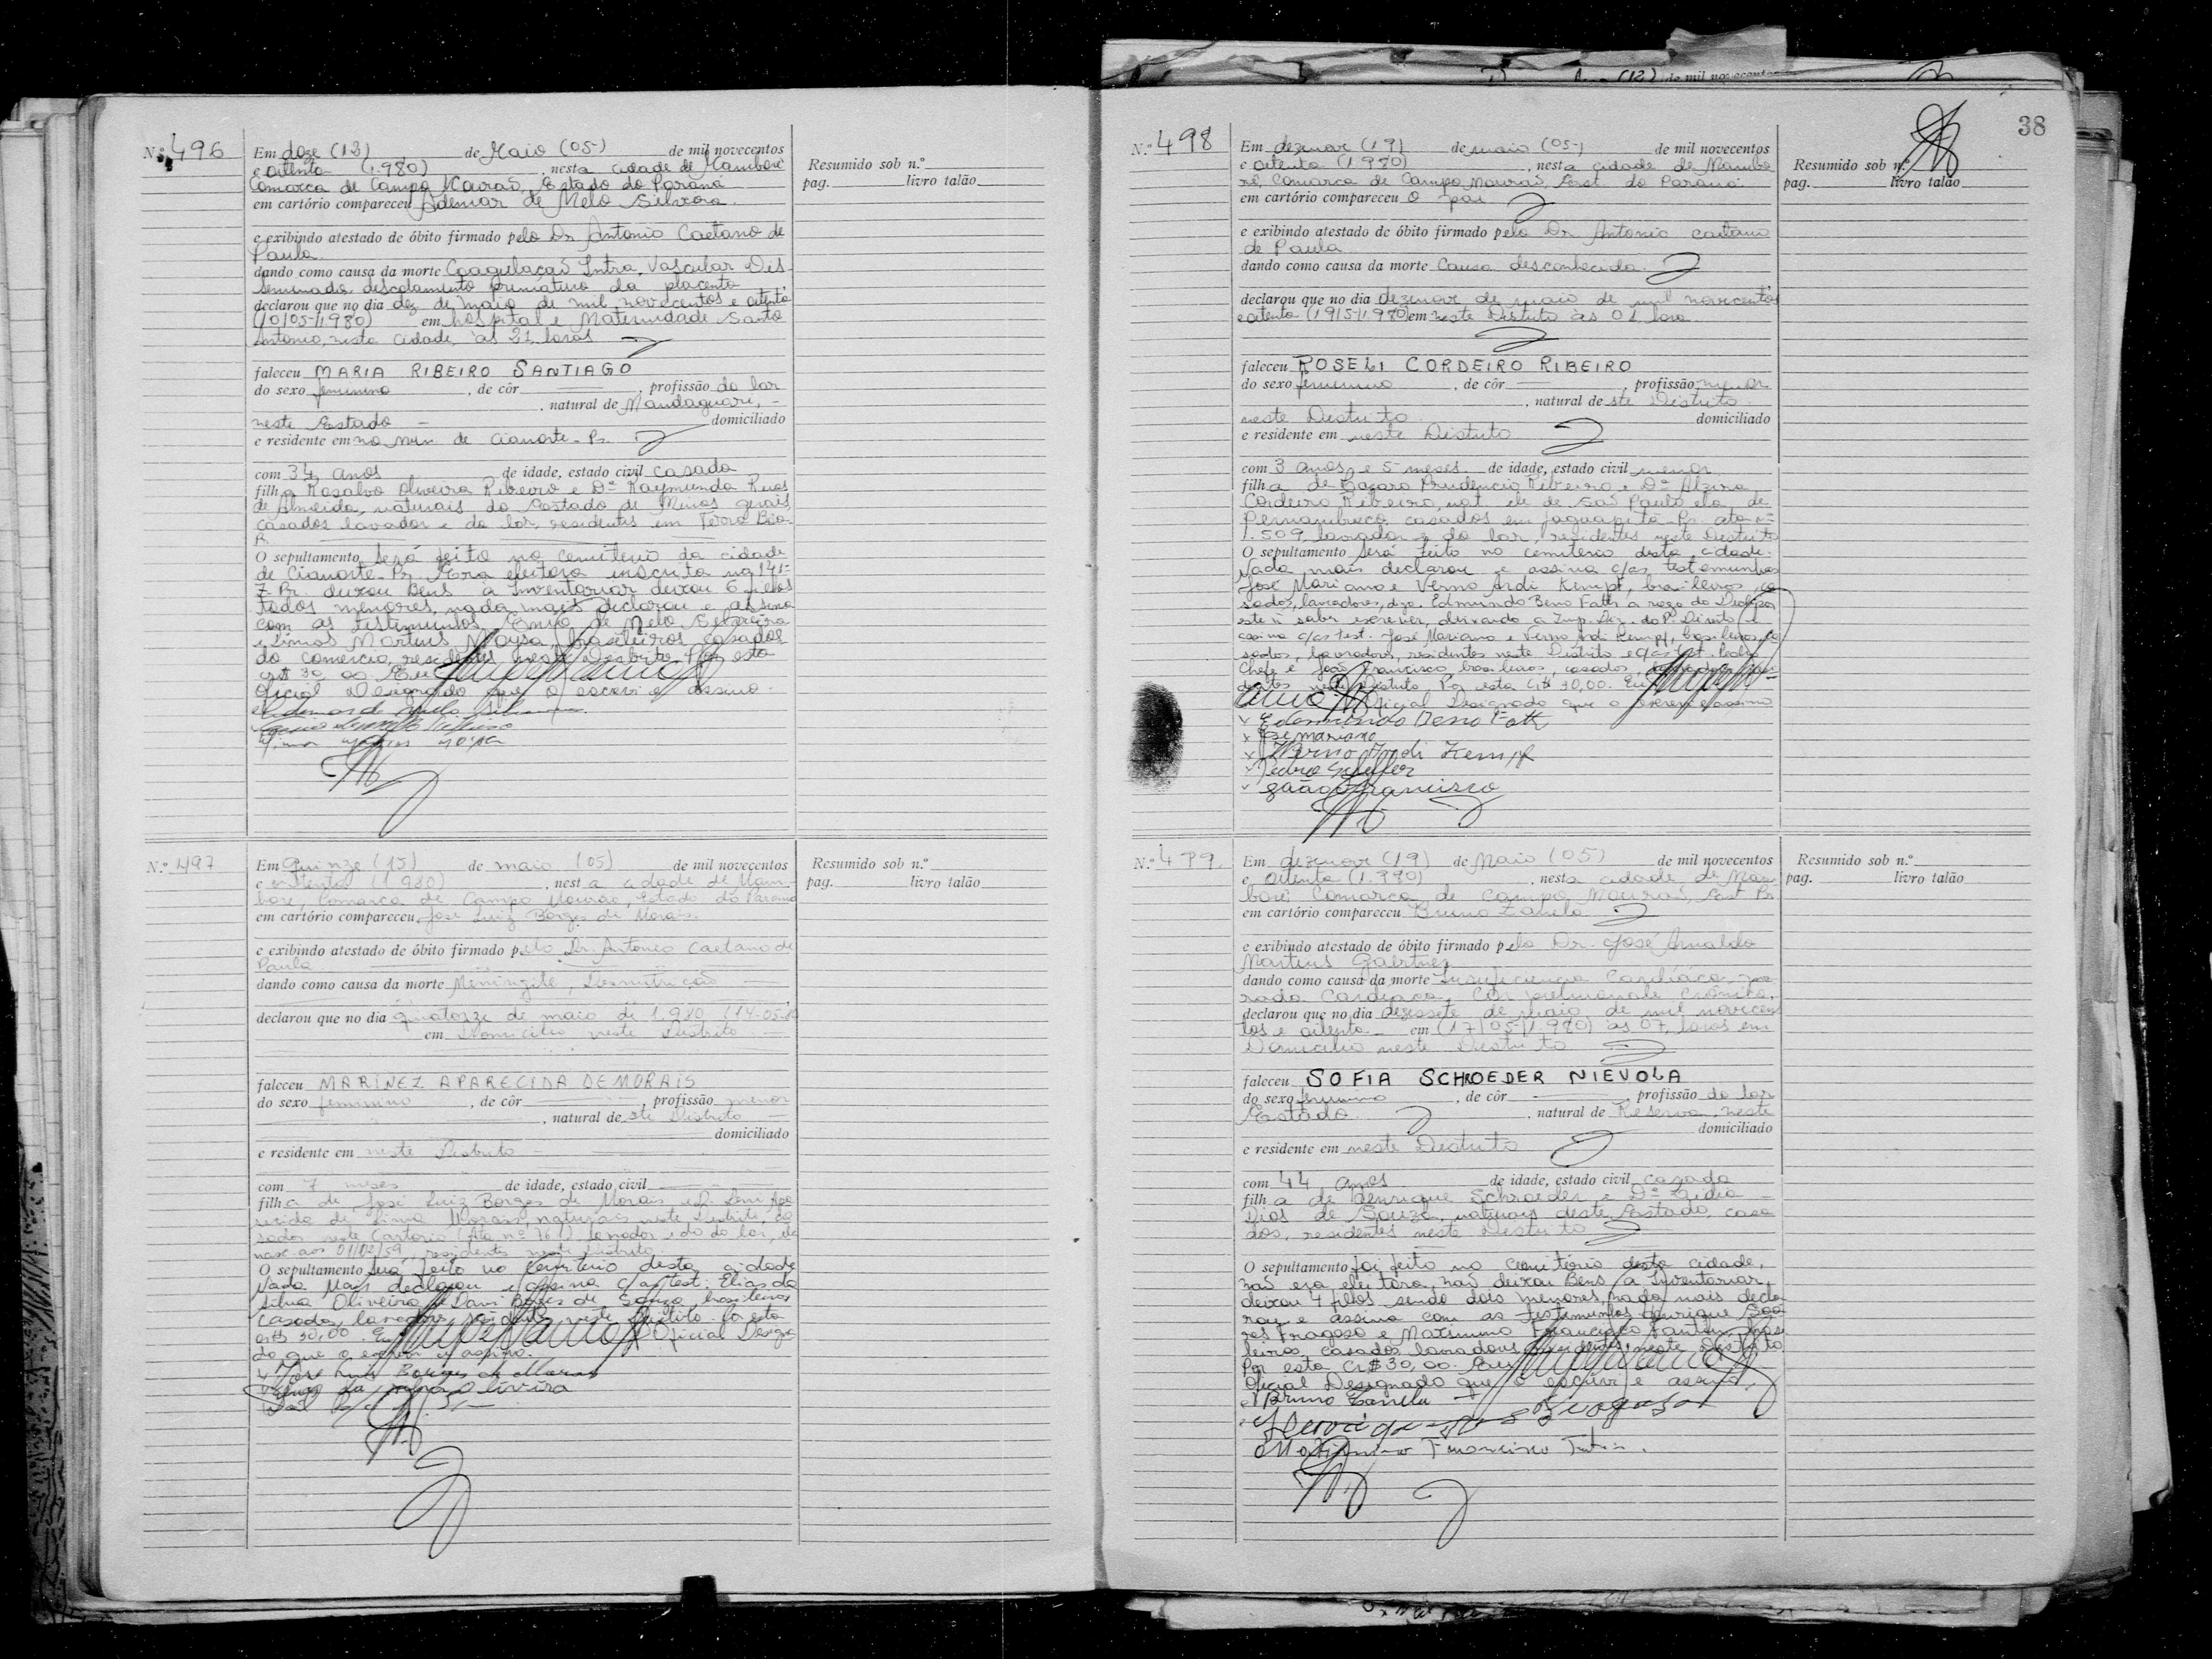 N.º 496
Em doze (12) de Maio (05) de mil novecentos
e oitenta (1.980) , nesta cidade de Mamborê
Comarca de Campo Mourão, Estado do Paraná
em cartório compareceu Ademar de Melo Silveira
e exibindo atestado de óbito firmado pelo Dr Antonio Caetano de
Paula
dando como causa da morte Coagulação Intra Vascular Dis-
seminada descolamento prematuro da placenta
declarou que no dia dez de maio de mil novecentos e oitenta
(10/05/1980) em hospital e Maternidade Santo
Antonio, nesta cidade às 21 horas
faleceu MARIA RIBEIRO SANTIAGO
do sexo feminino , de côr , profissão do lar
, natural de Mandaguari, -
neste Estado - domiciliado
e residente em no mun. de Cianorte - Pr.
com 34 anos de idade, estado civil casada
filha Rosalvo Oliveira Ribeiro e Dª Raymunda
de Almeida, naturais do Estado de Minas gerais
casados lavrador e do lar, residentes em Terra Boa-
Pr.
O sepultamento Será feito no cemiterio da cidade
de Cianorte - Pr. Era eleitora inscrita
Z-Pr. deixou Bens à Inventariar deixou 6 filhos
todos menores, nada mais declarou e assina
com as testemunhas de Melo Silveira
e Martins brasileiros casados
do comercio, residentes neste Distrito. Por esta
30,00 Eu
Oficial Designado que o escrevi e assino.
Resumido sob n.º
pag. livro talão
N.º 497
Em Quinze (15) de maio (05) de mil novecentos
e oitenta (1.980) , nesta cidade de Mam-
bore, Comarca de Campo Mourão, Estado do Paraná
em cartório compareceu Jose Luiz Borges de Morais
e exibindo atestado de óbito firmado pelo Dr. Antonio Caetano de
Paula
dando como causa da morte Meningite, Desnutrição
declarou que no dia quatorze de maio de 1.980 (14-05-80
em Domicilio neste Distrito
faleceu MARINEZ APARECIDA DE MORAIS
do sexo feminino , de côr , profissão menor
, natural deste Distrito
domiciliado
e residente em neste Distrito
com 7 meses de idade, estado civil
filha de José Luiz Borges de Morais e
de Lima Morais, naturais neste Distrito, ca
sados neste Cartorio (Ata nº 761) lavrador e do lar, ele
nasc. aos 01/02/59, residentes neste Distrito.
O sepultamento Sua feito no Cemiterio desta cidade
Nada Mais declarou e assina c/as test: Elias da
Silva Oliveira e Davi Borges de Souza brasileiros
casados, lavradores residentes neste Distrito. Por esta
cr$ 30,00. Eu Oficial Designa
do que o escrevi e assino.
José Luis Borges de Morais
Elias da Silva Oliveira
Resumido sob n.º
pag. livro talão
38
N.º 498
Em dezenove (19) de maio (05) de mil novecentos
e oitenta (1.980) , nesta cidade de Mambo
rê, Comarca de Campo Mourão, Est. do Paraná
em cartório compareceu O pai
e exibindo atestado de óbito firmado pelo Dr Antonio Caetano
de Paula
dando como causa da morte Causa desconhecida.
declarou que no dia dezenove de maio de mil novecentos
e oitenta (19/5/1980) em neste Distrito às 01 hora
faleceu ROSELI CORDEIRO RIBEIRO
do sexo feminino , de côr , profissão menor
, natural de ste Distrito
neste Distrito domiciliado
e residente em neste Distrito
com 3 anos, e 5 meses de idade, estado civil menor
filha de Lazaro Prudencio Ribeiro e Dª Alzira
Cordeiro Ribeiro, nat. ele de São Paulo ela de
Pernambuco casados em Jaguapitã - Pr. ata nº
1.509, lavrador e do lar, residentes neste Distrito
O sepultamento Será feito no cemiterio desta cidade.
Nada mais declarou e assina c/as testemunhas
José Mariano e Verno Ardi Kempf, brasileiros, ca
sados, lavradores, digo. Edmundo Beno Fath a rogo do Declarante
este ñ saber escrever, deixando a Imp. Dig. do P. Direito e
assina c/as test. José Mariano e Verno Ardi Kempf, brasileiros, ca
sados, lavradores, residentes neste Distrito e c/as test. Pedro
e João Francisco, brasileiros, casados, lavradores
neste Distrito Por esta Cr$ 30,00. Eu
Oficial Designado que o escrevi e assino
Edmundo Beno Fath
José mariano
Verno Ardi Kempf
Pedro
João Francisco
Resumido sob n.º
pag. livro talão
N.º 499
Em dezenove (19) de Maio (05) de mil novecentos
e oitenta (1.980) , nesta cidade de Mam
borê, Comarca de Campo Mourão, Est Pr.
em cartório compareceu Bruno Zanela
e exibindo atestado de óbito firmado pelo Dr. José Arnaldo
Martins Gaertner
dando como causa da morte Insuficiencia Cardiaca, pa
rada Cardiaca, Cor pulmonale Crônico.
declarou que no dia dezessete de maio de mil novecen
tos e oitenta em (17/05/1.980) às 07 horas em
Domicilio neste Distrito
faleceu SOFIA SCHROEDER NIEVOLA
do sexo feminino , de côr , profissão do lar
Estado. , natural de Reserva, neste
domiciliado
e residente em neste Distrito
com 44 anos de idade, estado civil casada
filha de Henrique Schroeder e Dª Lidia
Dias de Souza, naturais deste Estado, casa
dos, residentes neste Distrito
O sepultamento foi feito no Cemitério desta cidade,
não era eleitora, não deixou Bens a Inventariar,
deixou 4 filhos sendo dois menores, nada mais decla
rou e assina com as testemunhas Henrique Soa
res Fragoso e Maximino Francisco Fantin brasi
leiros casados lavradores residentes neste Distrito
Por esta Cr$ 30,00. Eu
Oficial Designado que o escrevi e assino.
Bruno Zanella
Resumido sob n.º
pag. livro talão